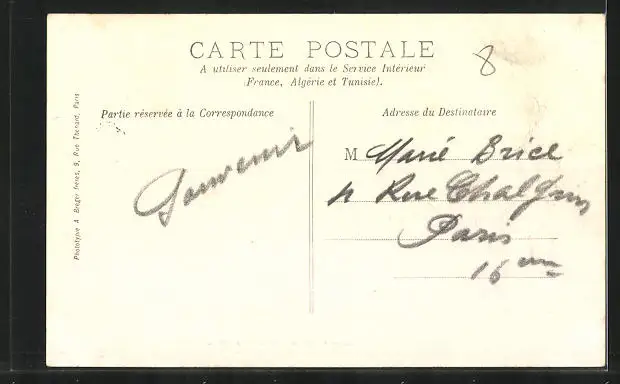 CARTE POSTALE
8
A utiliser seulement dans le Service Intérieur
(France, Algérie et Tunisie).
Partie réservée à la Correspondance
Adresse du Destinataire
Souvenir
M Marie Brice
4 Rue Chalgrin
Paris
16 eme
Phototypie A. Breger frères, 9, Rue Thénard, Paris